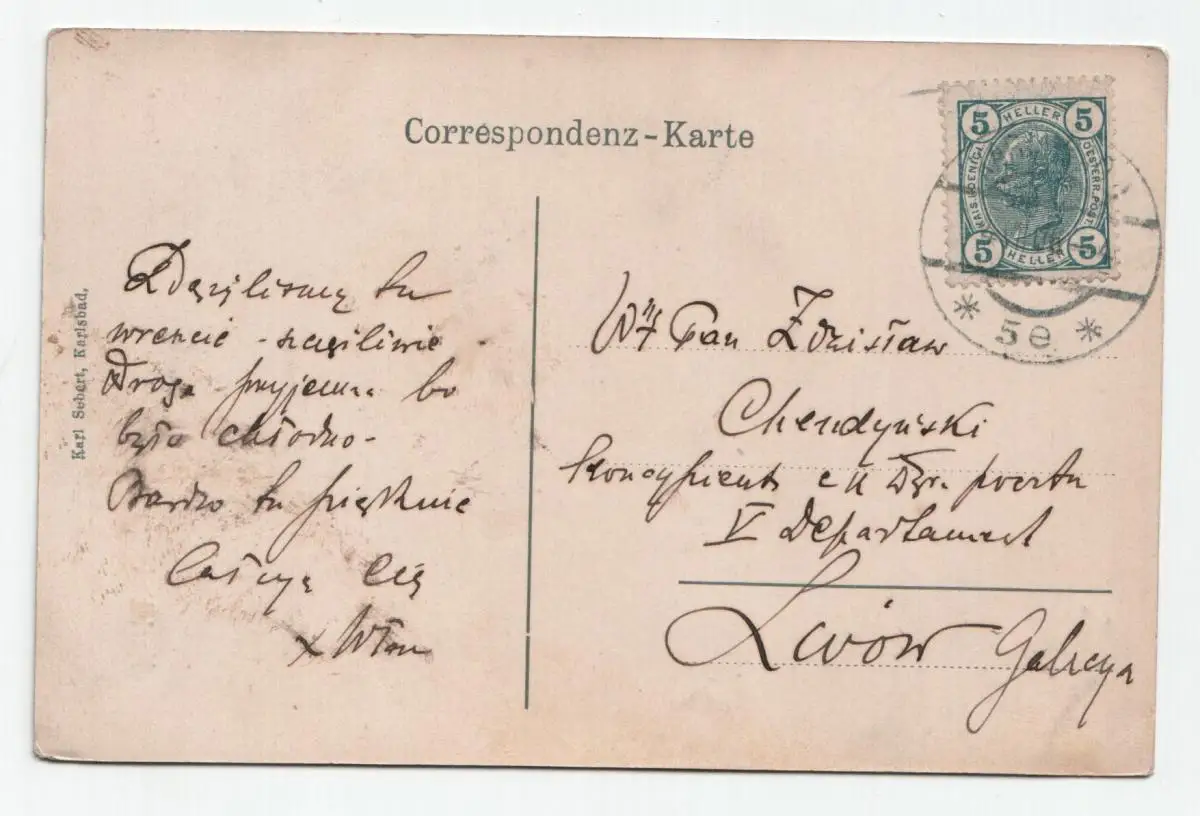 Correspondenz-Karte
5 HELLER 5
KAIS. KOENIGL.
OESTERR. POST.
5 HELLER 5
* 5e *
Karl Sebert, Karlsbad.
Zdążyliśmy tu
wreszcie
Droga przyjemna bo
było chłodno-
Bardzo tu pięknie
Całuję Cię
Pan Zdzisław
Chendyński
Koncypient c k Dyr. pocztu
V Departament
Lwów Galicya